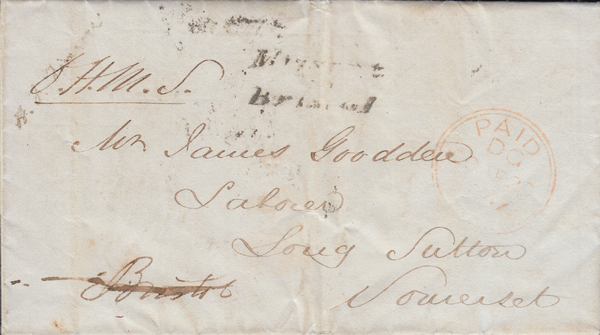 O.H.M.S.
Missent
Bristol
PAID
DO
Mr James Goodden
Labourer
Long Sutton
Bristol
Somerset